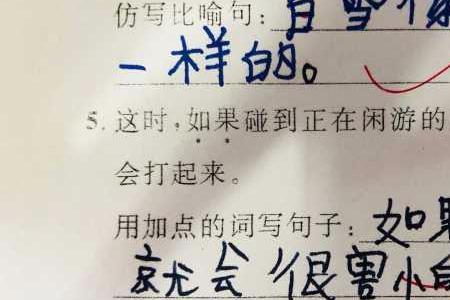 仿写比喻句：白雪像
一样的。
5. 这时，如果碰到正在闲游的
会打起来。
用加点的词写句子：如果
就会很害小白